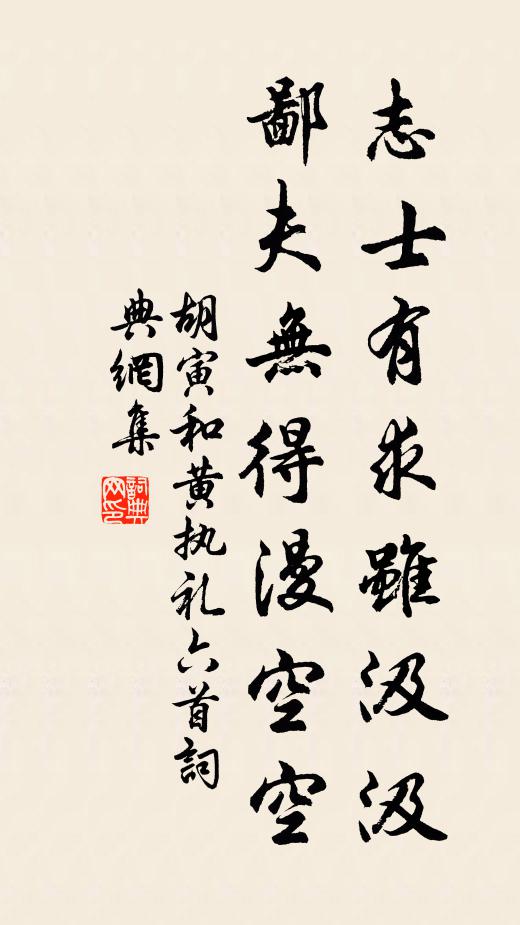 志士有求雖汲汲
鄙夫無得漫空空
胡寅和黄执礼六首詞
典網集
詞典
网印